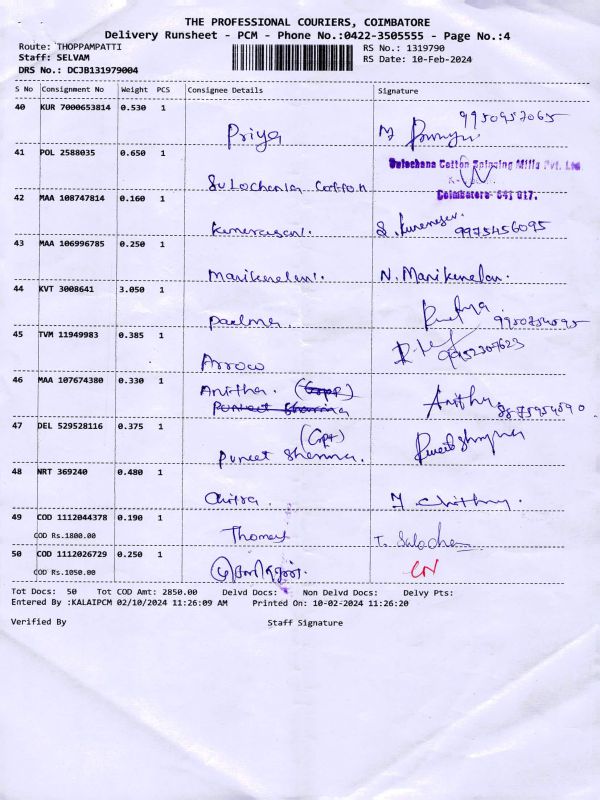 THE PROFESSIONAL COURIERS, COIMBATORE
Delivery Runsheet - PCM - Phone No.:0422-3505555 - Page No.:4
Route: THOPPAMPATTI RS No.: 1319790
Staff: SELVAM RS Date: 10-Feb-2024
DRS No.: DCJB131979004
S No Consignment No Weight PCS Consignee Details Signature
40 KUR 7000653814 0.530 1
Priya 9950957065
41 POL 2588035 0.650 1
Sulochana Cotton Spinning Mills Pvt. Ltd.
Sulochana Cotton
Coimbatore- 641 017.
42 MAA 108747814 0.160 1
Kumarasan. 9975456095
43 MAA 106996785 0.250 1
Manikandan. N. Manikandan.
44 KVT 3008641 3.050 1
Padma.
45 TVM 11949983 0.385 1
Arrow 9952307623
46 MAA 107674380 0.330 1
Anitha. Anitha
47 DEL 529528116 0.375 1
(Cpt)
Puneet Sharma.
48 NRT 369240 0.480 1
Chitra.
49 COD 1112044378 0.190 1
COD Rs.1800.00 Thomas
50 COD 1112026729 0.250 1
COD Rs.1050.00
Tot Docs: 50 Tot COD Amt: 2850.00 Delvd Docs: Non Delvd Docs: Delvy Pts:
Entered By :KALAIPCM 02/10/2024 11:26:09 AM Printed On: 10-02-2024 11:26:20
Verified By Staff Signature